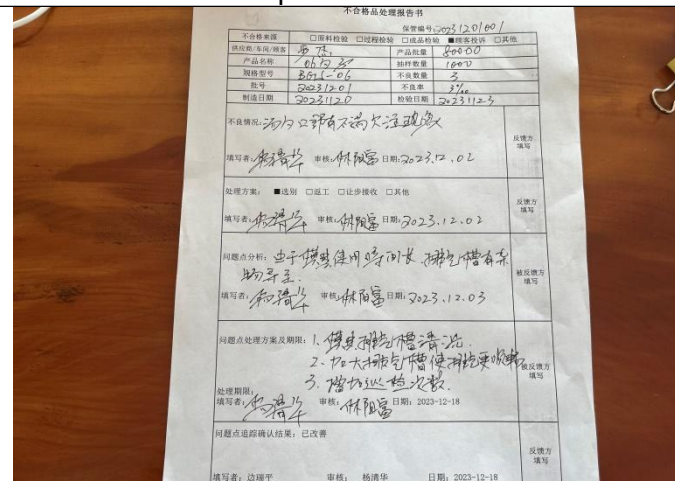 不合格品处理报告书
保管编号:2023120100/
不合格来源 □原料检验 □过程检验 □成品检验 ■顾客投诉 □其他
供应商/车间/顾客 产品批量 80000
产品名称 抽样数量 1000
规格型号 BG15-06 不良数量 3
批号 20231201 不良率 3‰
制造日期 20231120 检验日期 2023.12.3
不良情况:汤勺口部有不满欠注现象
反馈方填写
填写者:杨清华 审核:林阳富 日期:2023.12.02
处理方案: ■选别 □返工 □让步接收 □其他
反馈方填写
填写者:杨清华 审核:林阳富 日期:2023.12.02
问题点分析:由于模具使用时间长,排气槽有杂
物导至.
被反馈方填写
填写者:杨清华 审核:林阳富 日期:2023.12.03
问题点处理方案及期限:1、模具排气槽清洗.
2、加大排气槽使排气更顺畅
3、增加巡检次数.
被反馈方填写
处理期限:
填写者:杨清华 审核:林阳富 日期:2023-12-18
问题点追踪确认结果:已改善
反馈方填写
填写者:边瑞平 审核: 杨清华 日期:2023-12-18